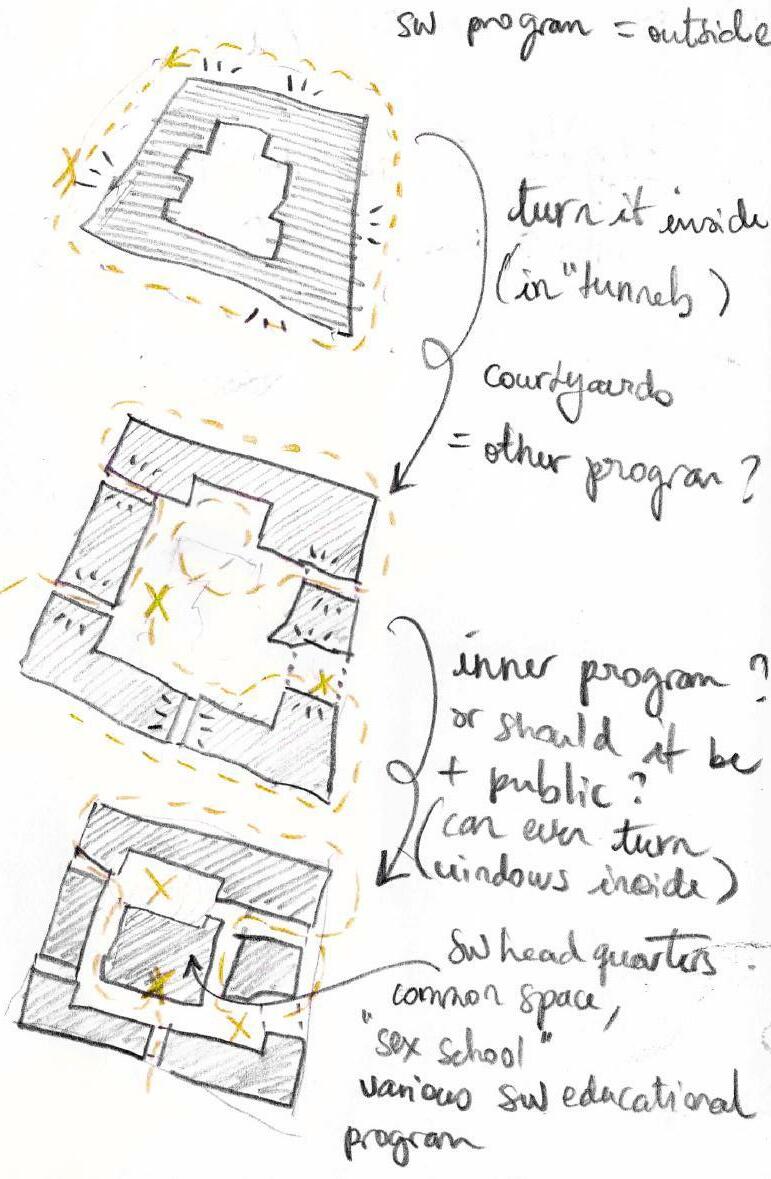 sw program = outside
turn it inside
(in "tunnels)
courtyards
= other program ?
inner program ?
or should it be
+ public ?
(can even turn
windows inside)
SW headquarters
common space,
"sex school"
various sw educational
program